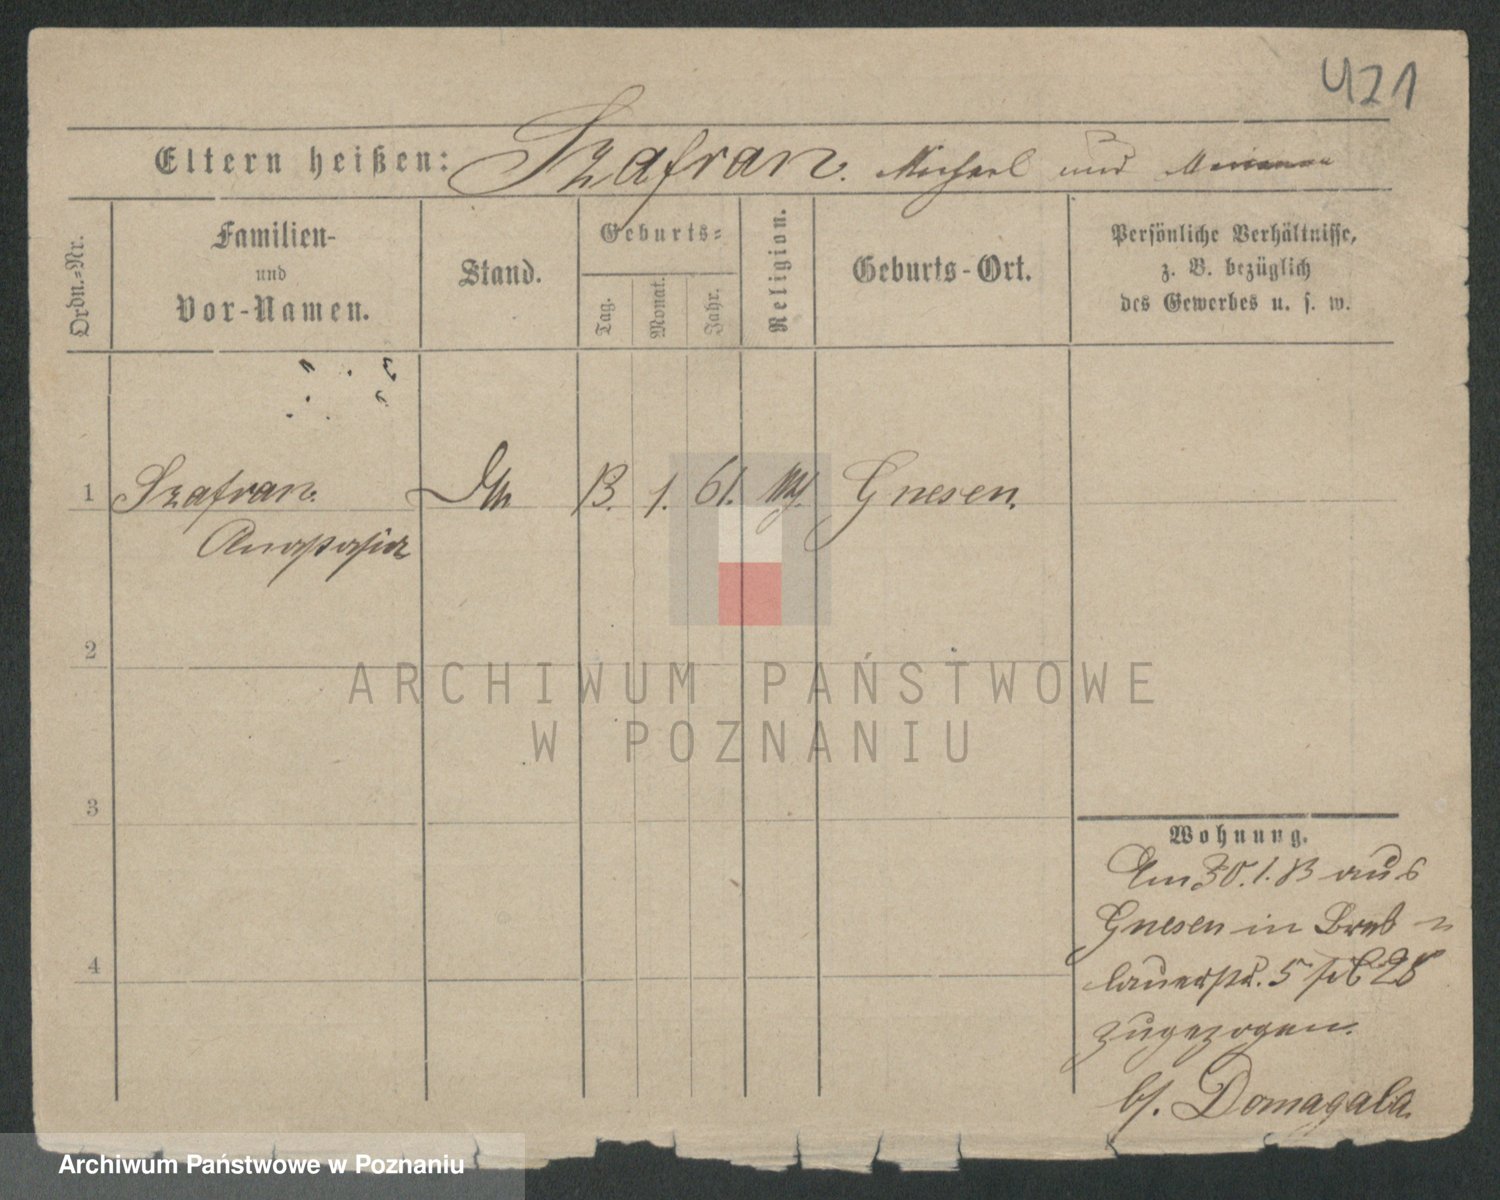 421
Eltern heißen: Szafran. Michael und Marianna
Ordn.-Nr.
Familien-
und
Vor-Namen.
Stand.
Geburts-
Tag.
Monat.
Jahr.
Religion.
Geburts-Ort.
Persönliche Verhältnisse,
z. B. bezüglich
des Gewerbes u. s. w.
1 Szafran. 13. 1. 61. Gnesen.
Anastasia
2
ARCHIWUM PAŃSTWOWE
W POZNANIU
3
Wohnung.
Am 30.1.83 aus
Gnesen in Bres-
4
lauerstr. 5
zugezogen.
bf. Domagala
Archiwum Państwowe w Poznaniu